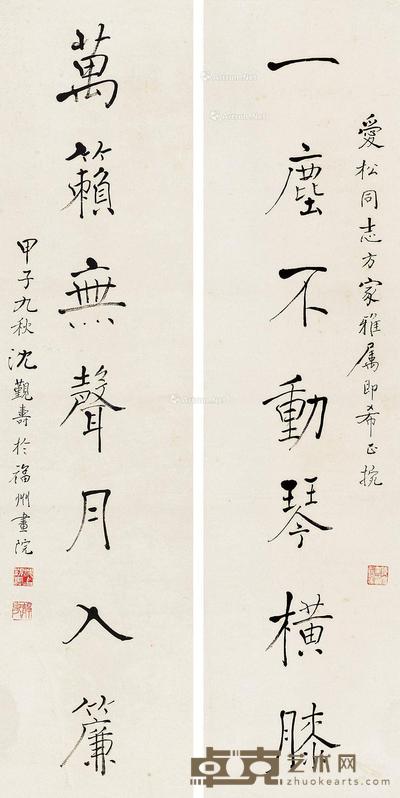 愛松同志方家雅属即希正捥
一塵不動琴橫膝
萬籟無聲月入簾
甲子九秋沈覲壽於福州畫院
Artron.Net
卓克艺术网
zhuokearts.com